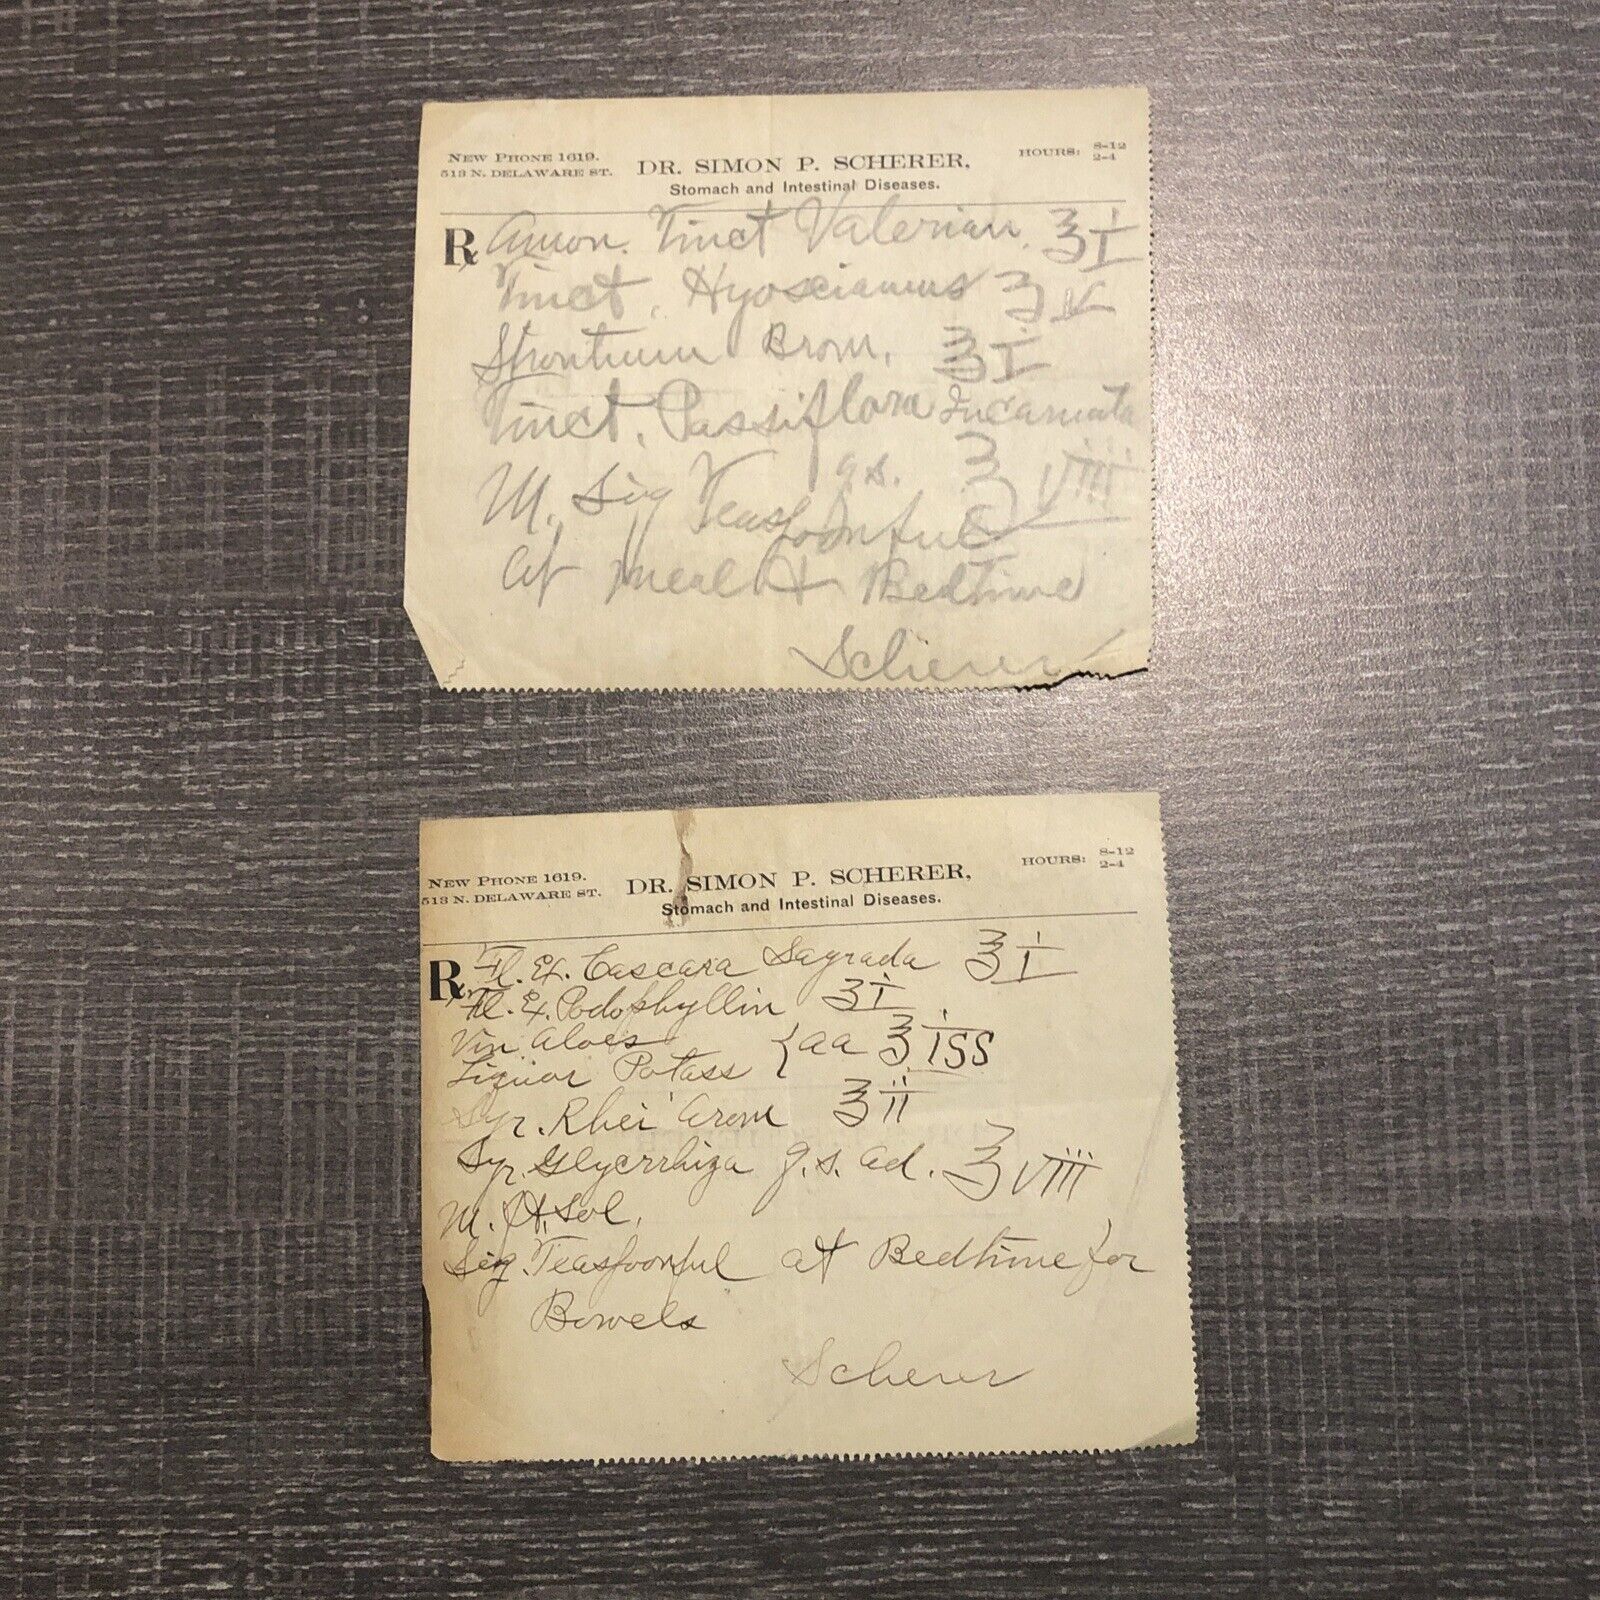 NEW PHONE 1619.
513 N. DELAWARE ST.
DR. SIMON P. SCHERER,
Stomach and Intestinal Diseases.
HOURS: 8-12
2-4
Rx Amon. Tinct Valerian ℥ i
Tinct. Hyosciamus ʒ v
Strontium Brom. ℥ i
Tinct. Passiflora Incarnata
q.s. ℥ viii
M. Sig Teaspoonful
at meal & Bedtime
Scherer
NEW PHONE 1619.
513 N. DELAWARE ST.
DR. SIMON P. SCHERER,
Stomach and Intestinal Diseases.
HOURS: 8-12
2-4
Rx Fl. Ex. Cascara Sagrada ℥ i
Fl. Ex. Podophyllin ʒ i
Vin Aloes
Liquor Potass { aa ℥ iss
Syr. Rhei Arom ℥ ii
Syr. Glycrrhiza q.s. ad. ℥ viii
M. Ft. Sol.
Sig. Teaspoonful at Bedtime for
Bowels
Scherer